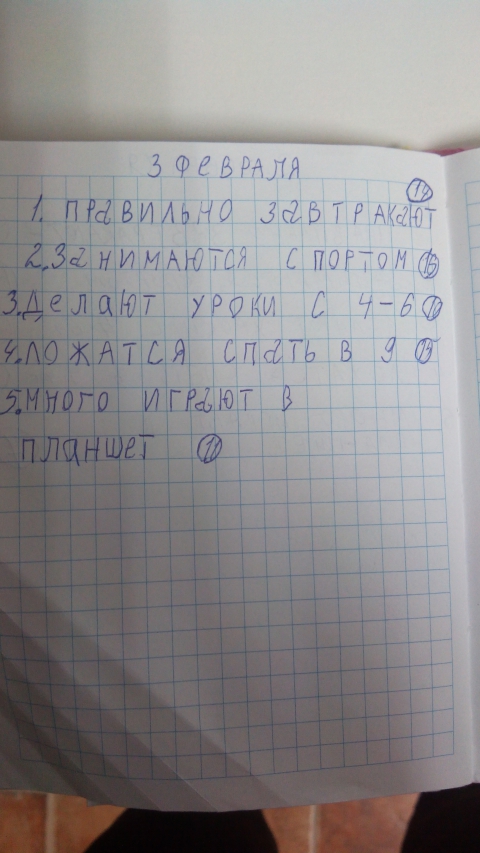 3 ФЕВРАЛЯ
1. ПРАВИЛЬНО ЗАВТРАКАЮТ
2. ЗАНИМАЮТСЯ СПОРТОМ
3. ДЕЛАЮТ УРОКИ С 4-6
4. ЛОЖАТСЯ СПАТЬ В 9
5. МНОГО ИГРАЮТ В
ПЛАНШЕТ